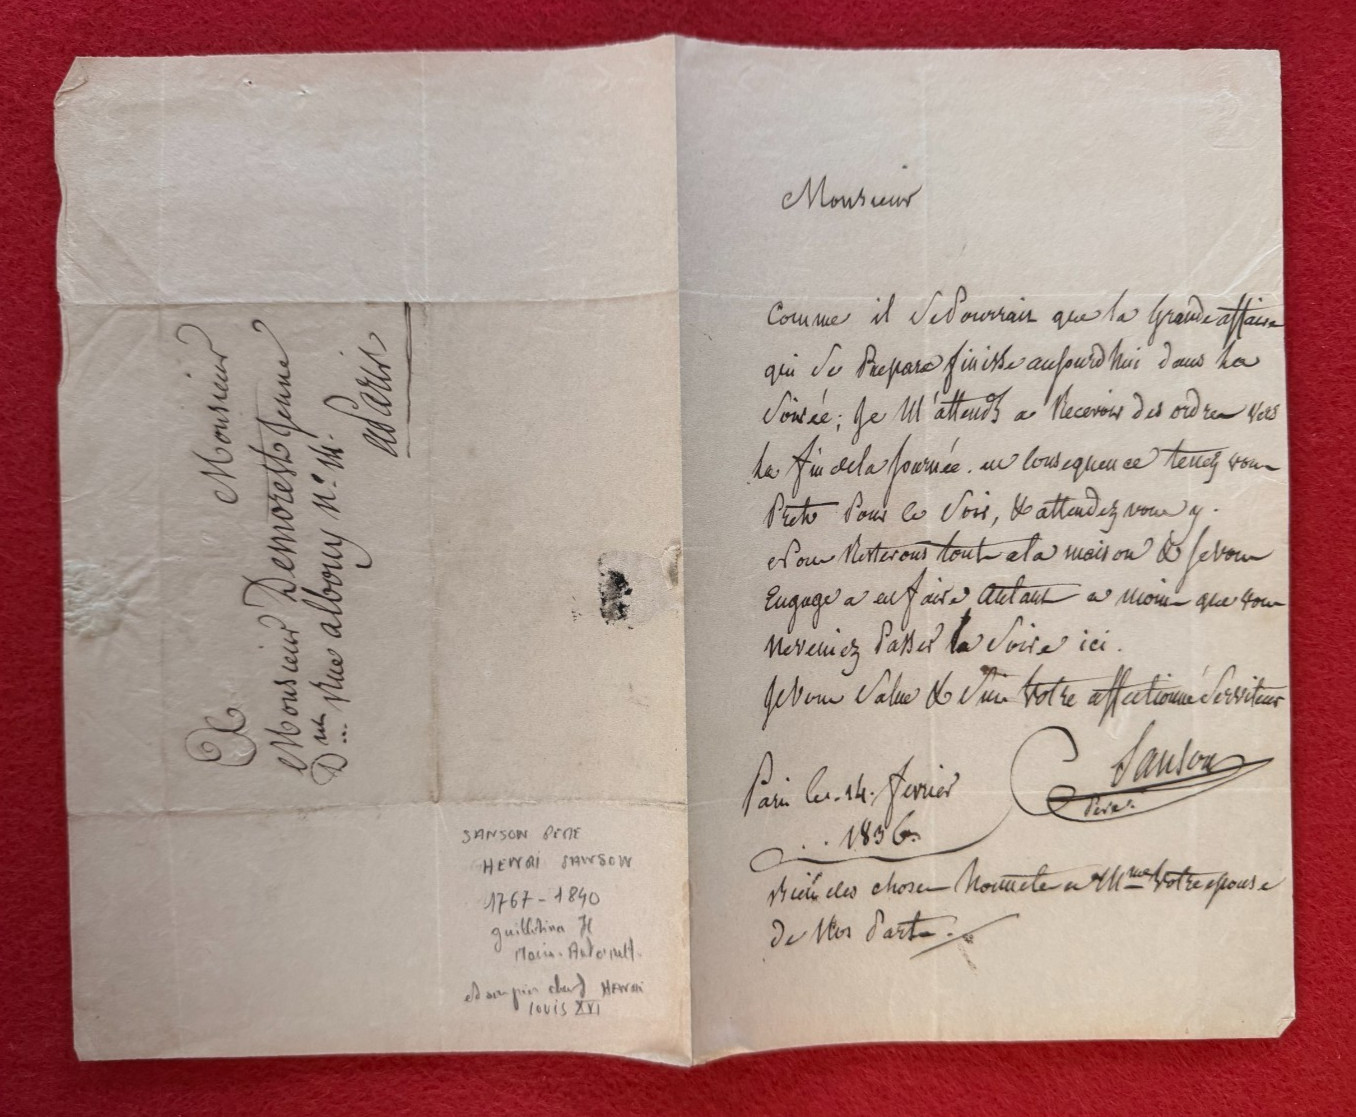 A
Monsieur
Monsieur Demorest Jeune
Rue albouy N°. 14.
a Paris
SANSON PERE
HENRI SANSON
1767-1840
guillotina
Marie-Antoinette.
et son père HENRI
LOUIS XVI
Monsieur
Comme il se Pourrait que la Grande affaire
qui se Prepare finisse aujourd'hui dans La
Soirée; je M'attends a Recevoir des ordres vers
La fin de la journée. en Consequence tenez vous
Prets Pour le Soir, & attendez vous y.
Nous Resterons tous a la maison & je vous
Engage a en faire Autant a moins que vous
ne veniez Passer la Soiree ici.
Je vous Salue & Suis Votre affectionné Serviteur
Sanson
Pere.
Paris le 14. fevrier
1836.
Bien des choses honnetes a Mme Votre epouse
de Nos Parts.